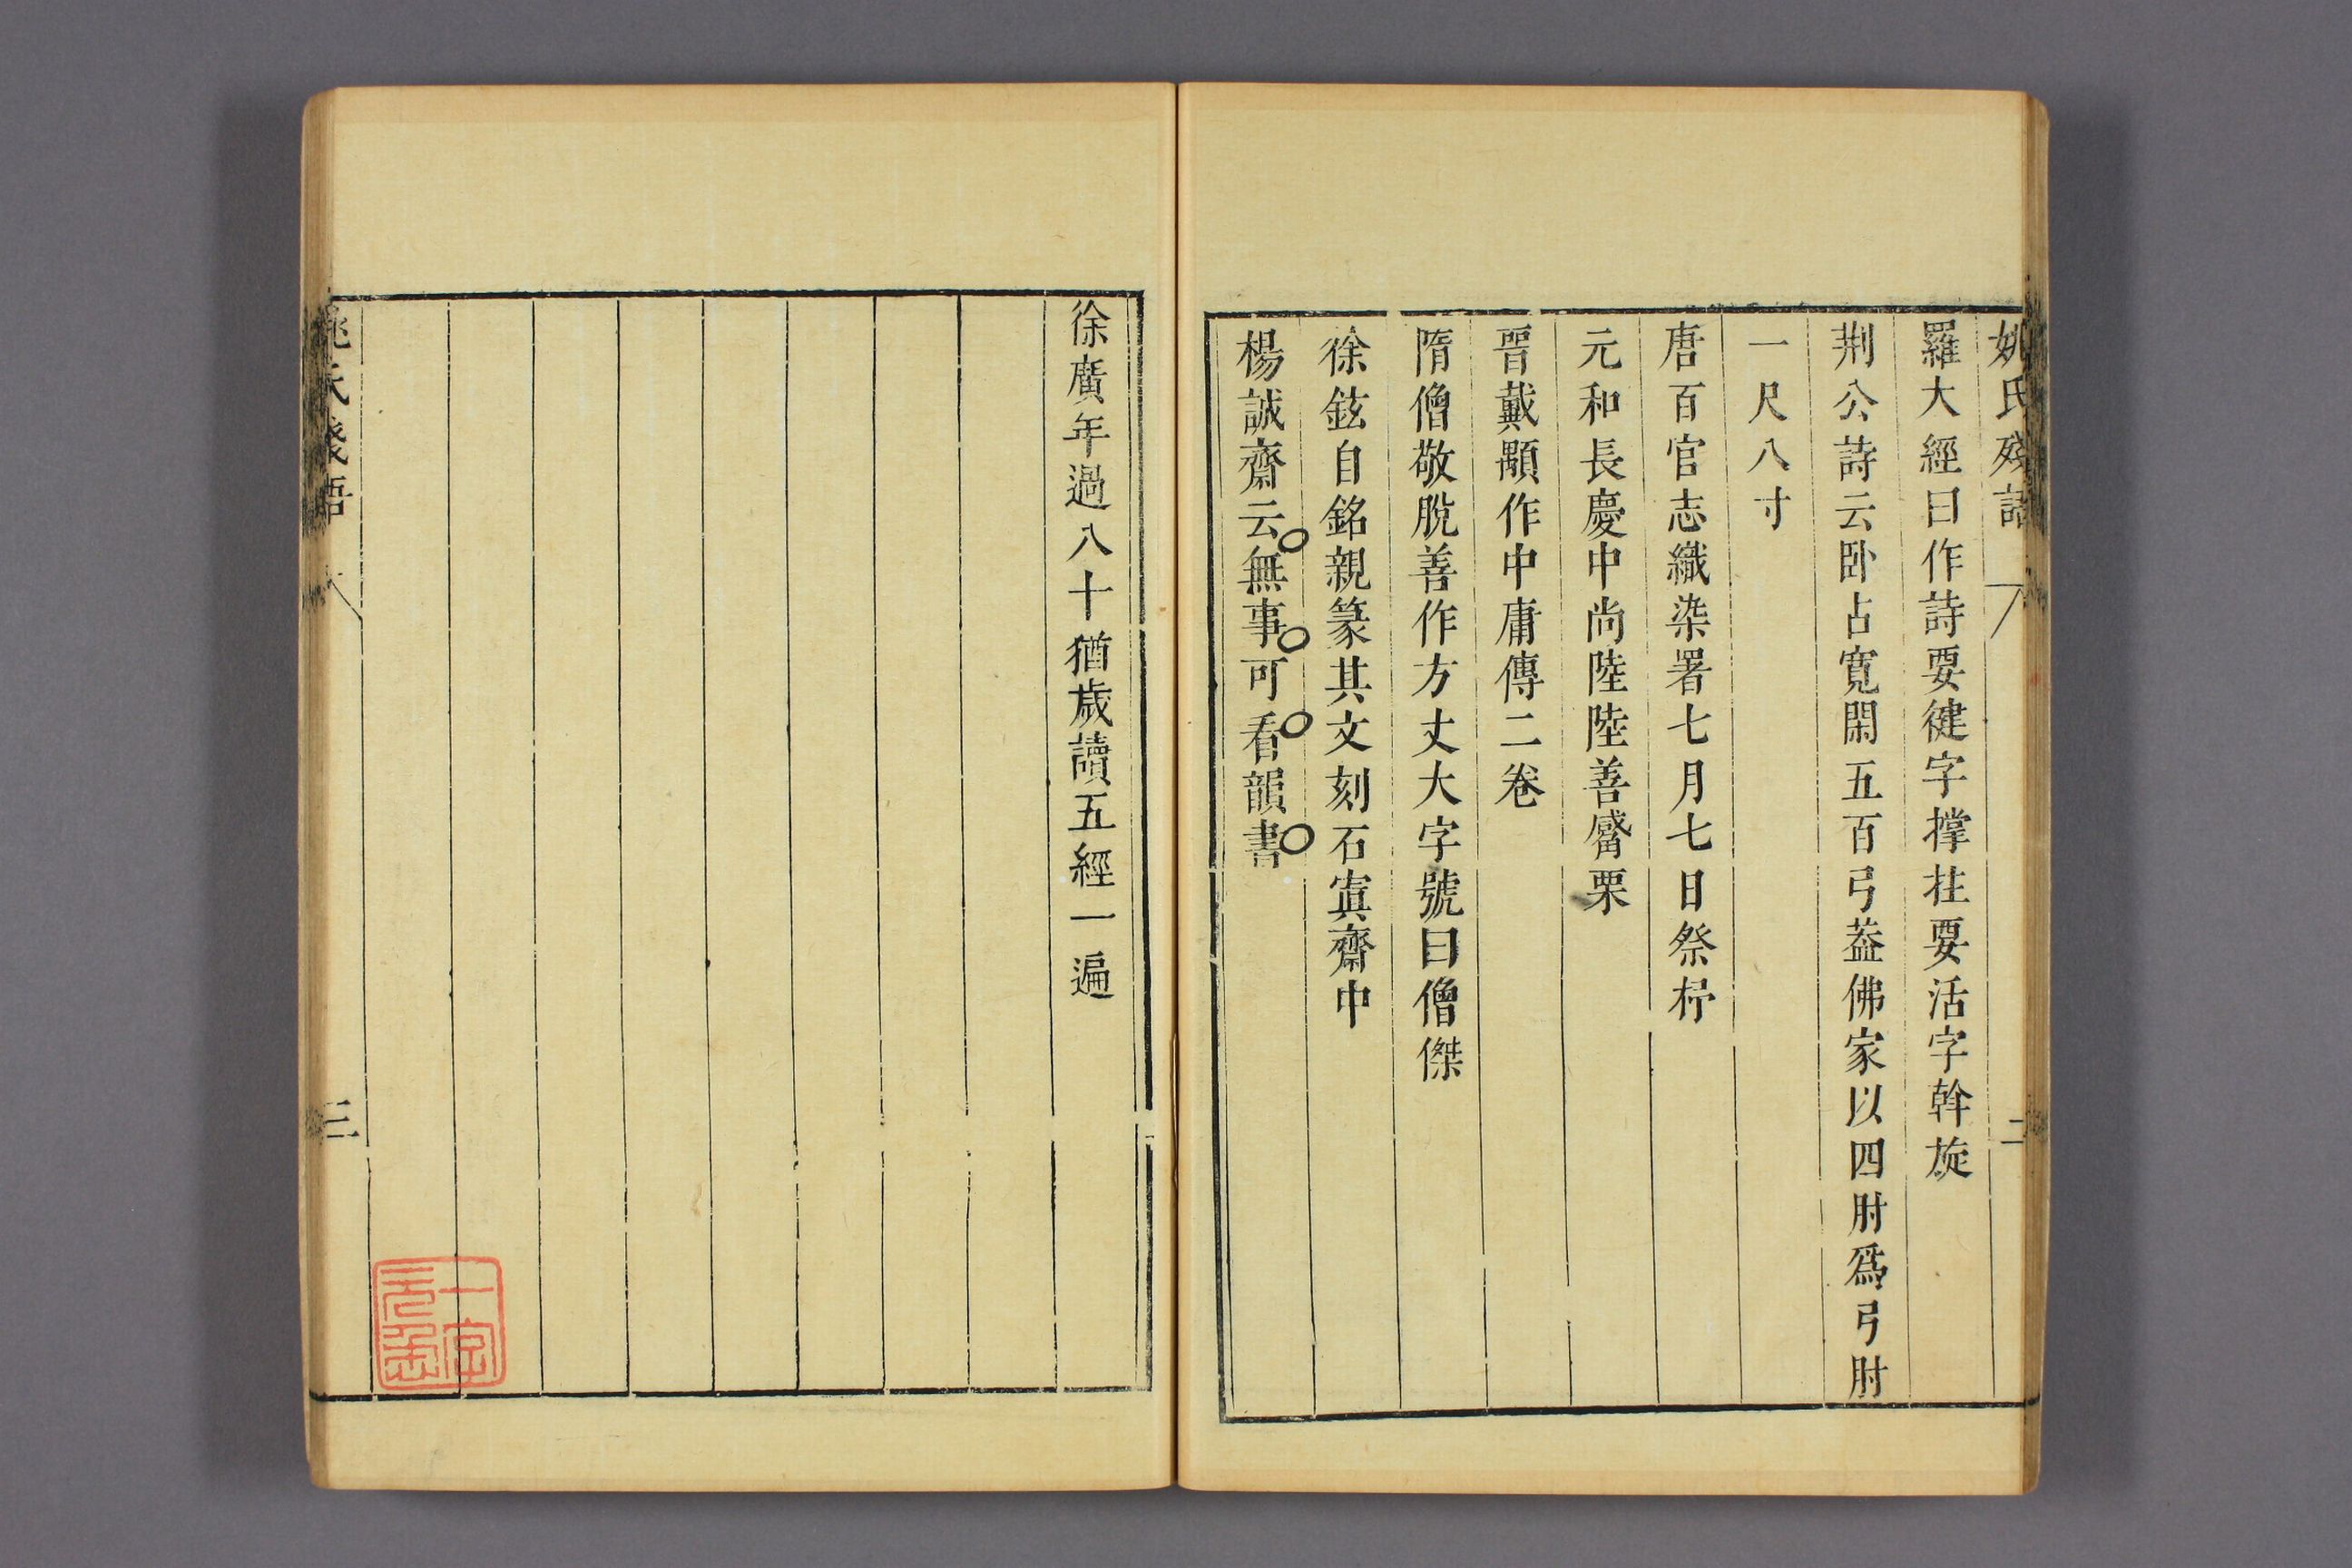 姚氏殘語 二
羅大經曰作詩要健字撐拄要活字斡旋
荆公詩云卧占寬閑五百弓葢佛家以四肘爲弓肘
一尺八寸
唐百官志織染署七月七日祭杼
元和長慶中尚陸陸善觱栗
晉戴顒作中庸傳二卷
隋僧敬脫善作方丈大字號曰僧傑
徐鉉自銘親篆其文刻石寘齋中
楊誠齋云無事可看韻書
徐廣年過八十猶歲讀五經一遍
姚氏殘語 三